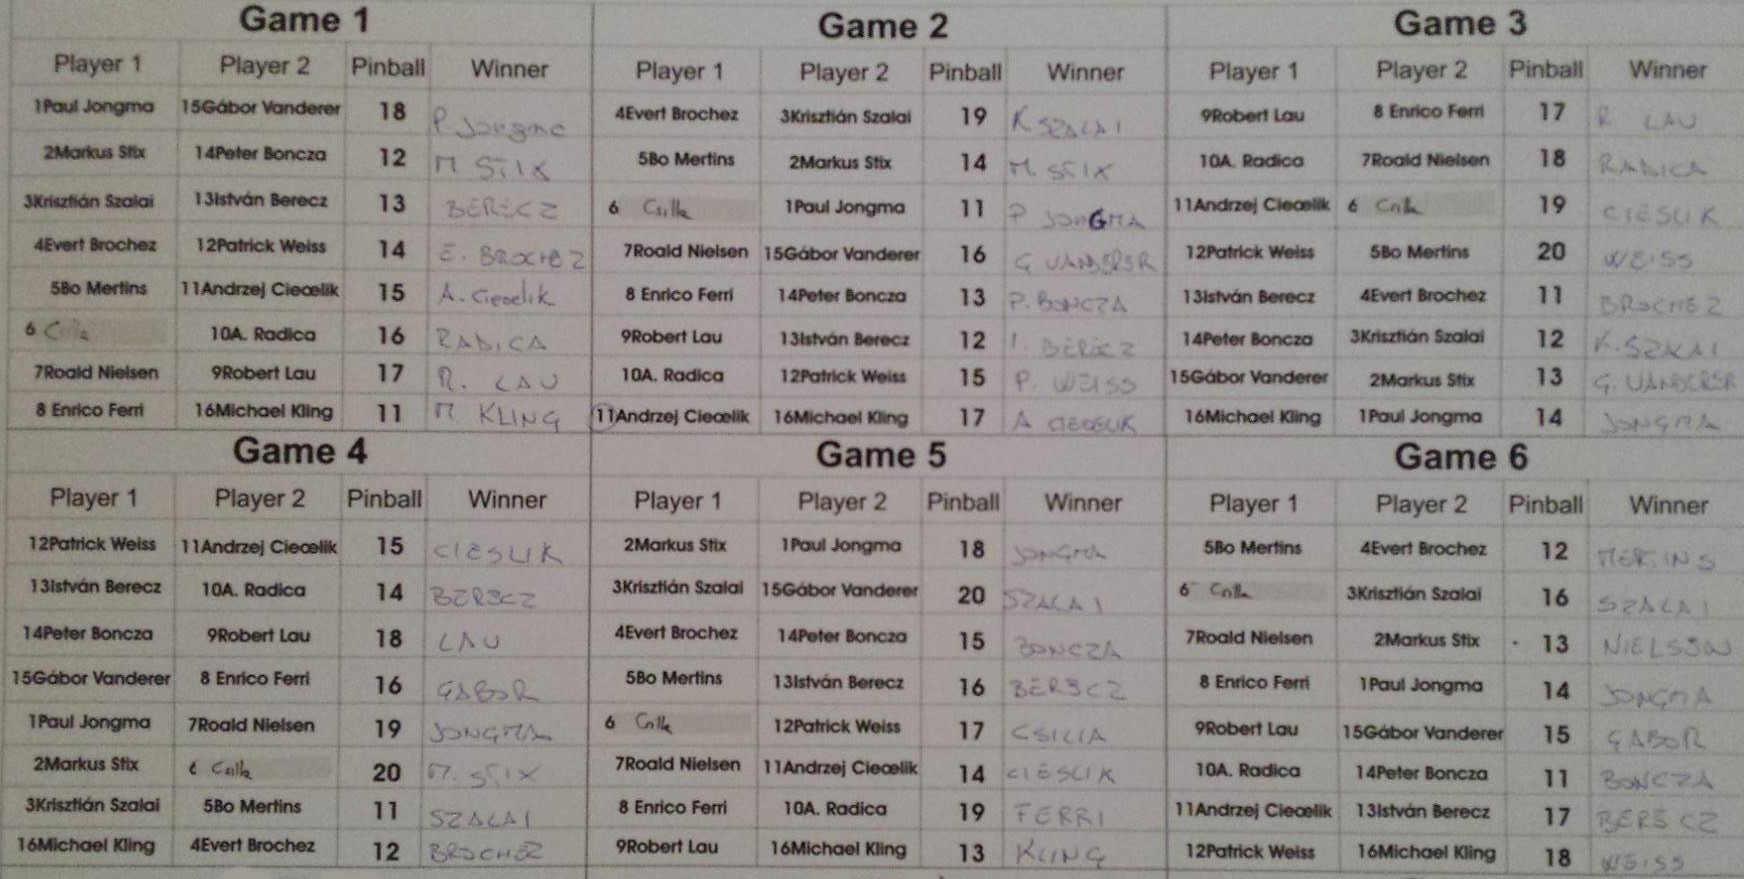 Game 1
Player 1 Player 2 Pinball Winner
1Paul Jongma 15Gábor Vanderer 18 P. Jongma
2Markus Stix 14Peter Boncza 12 M STIX
3Krisztián Szalai 13István Berecz 13 BERECZ
4Evert Brochez 12Patrick Weiss 14 E. BROCHEZ
5Bo Mertins 11Andrzej Cieœlik 15 A. Cieoelik
6 10A. Radica 16 RADICA
7Roald Nielsen 9Robert Lau 17 R. LAU
8 Enrico Ferri 16Michael Kling 11 M. KLING
Game 2
Player 1 Player 2 Pinball Winner
4Evert Brochez 3Krisztián Szalai 19 K SZALAI
5Bo Mertins 2Markus Stix 14 M. STIX
6 Csilla 1Paul Jongma 11 P JONGMA
7Roald Nielsen 15Gábor Vanderer 16 G VANDERER
8 Enrico Ferri 14Peter Boncza 13 P. BONCZA
9Robert Lau 13István Berecz 12 I. BERECZ
10A. Radica 12Patrick Weiss 15 P. WEISS
11Andrzej Cieœlik 16Michael Kling 17 A CIEOELIK
Game 3
Player 1 Player 2 Pinball Winner
9Robert Lau 8 Enrico Ferri 17 R LAU
10A. Radica 7Roald Nielsen 18 RADICA
11Andrzej Cieœlik 6 Csilla 19 CIESLIK
12Patrick Weiss 5Bo Mertins 20 WEISS
13István Berecz 4Evert Brochez 11 BROCHEZ
14Peter Boncza 3Krisztián Szalai 12 K. SZALAI
15Gábor Vanderer 2Markus Stix 13 G. VANDERER
16Michael Kling 1Paul Jongma 14 JONGMA
Game 4
Player 1 Player 2 Pinball Winner
12Patrick Weiss 11Andrzej Cieœlik 15 CIESLIK
13István Berecz 10A. Radica 14 BERECZ
14Peter Boncza 9Robert Lau 18 LAU
15Gábor Vanderer 8 Enrico Ferri 16 GABOR
1Paul Jongma 7Roald Nielsen 19 JONGMA
2Markus Stix 6 Csilla 20 M. STIX
3Krisztián Szalai 5Bo Mertins 11 SZALAI
16Michael Kling 4Evert Brochez 12 BROCHEZ
Game 5
Player 1 Player 2 Pinball Winner
2Markus Stix 1Paul Jongma 18 JONGMA
3Krisztián Szalai 15Gábor Vanderer 20 SZALAI
4Evert Brochez 14Peter Boncza 15 BONCZA
5Bo Mertins 13István Berecz 16 BERECZ
6 Csilla 12Patrick Weiss 17 CSILLA
7Roald Nielsen 11Andrzej Cieœlik 14 CIESLIK
8 Enrico Ferri 10A. Radica 19 FERRI
9Robert Lau 16Michael Kling 13 KLING
Game 6
Player 1 Player 2 Pinball Winner
5Bo Mertins 4Evert Brochez 12 MERTINS
6 Csilla 3Krisztián Szalai 16 SZALAI
7Roald Nielsen 2Markus Stix 13 NIELSEN
8 Enrico Ferri 1Paul Jongma 14 JONGMA
9Robert Lau 15Gábor Vanderer 15 GABOR
10A. Radica 14Peter Boncza 11 BONCZA
11Andrzej Cieœlik 13István Berecz 17 BERECZ
12Patrick Weiss 16Michael Kling 18 WEISS